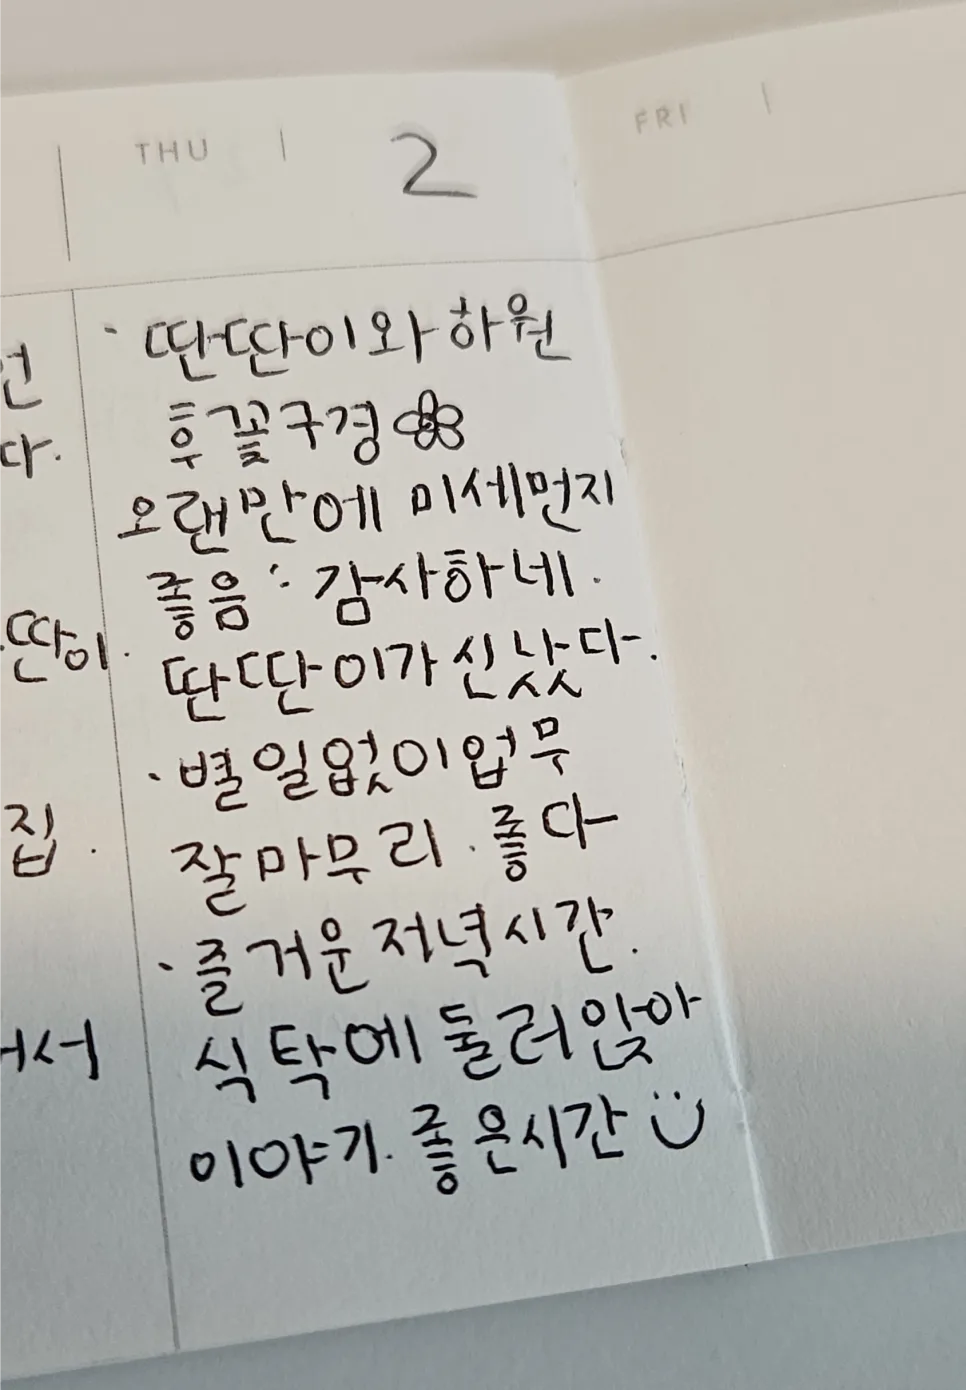 THU 2 FRI
· 딴딴이와 하원
후 꽃구경
오랜만에 미세먼지
좋음 감사하네.
딴딴이가 신났다.
· 별일없이 업무
잘 마무리. 좋다
· 즐거운 저녁시간.
식탁에 둘러앉아
이야기. 좋은시간
언
다.
딴이.
집.
서